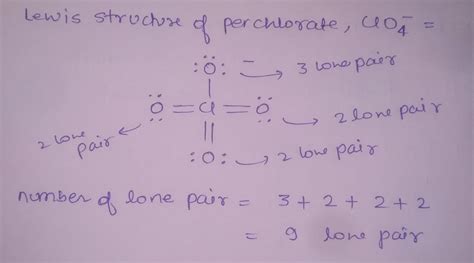 Lewis structure of perchlorate, ClO₄⁻ =
:Ö: ⁻ → 3 lone pair
Ö = Cl = Ö → 2 lone pair
2 lone pair
:O: → 2 lone pair
number of lone pair = 3 + 2 + 2 + 2
= 9 lone pair